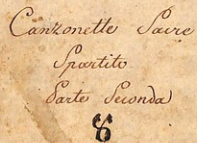 Canzonette Sacre
Spartito
Parte Seconda
8